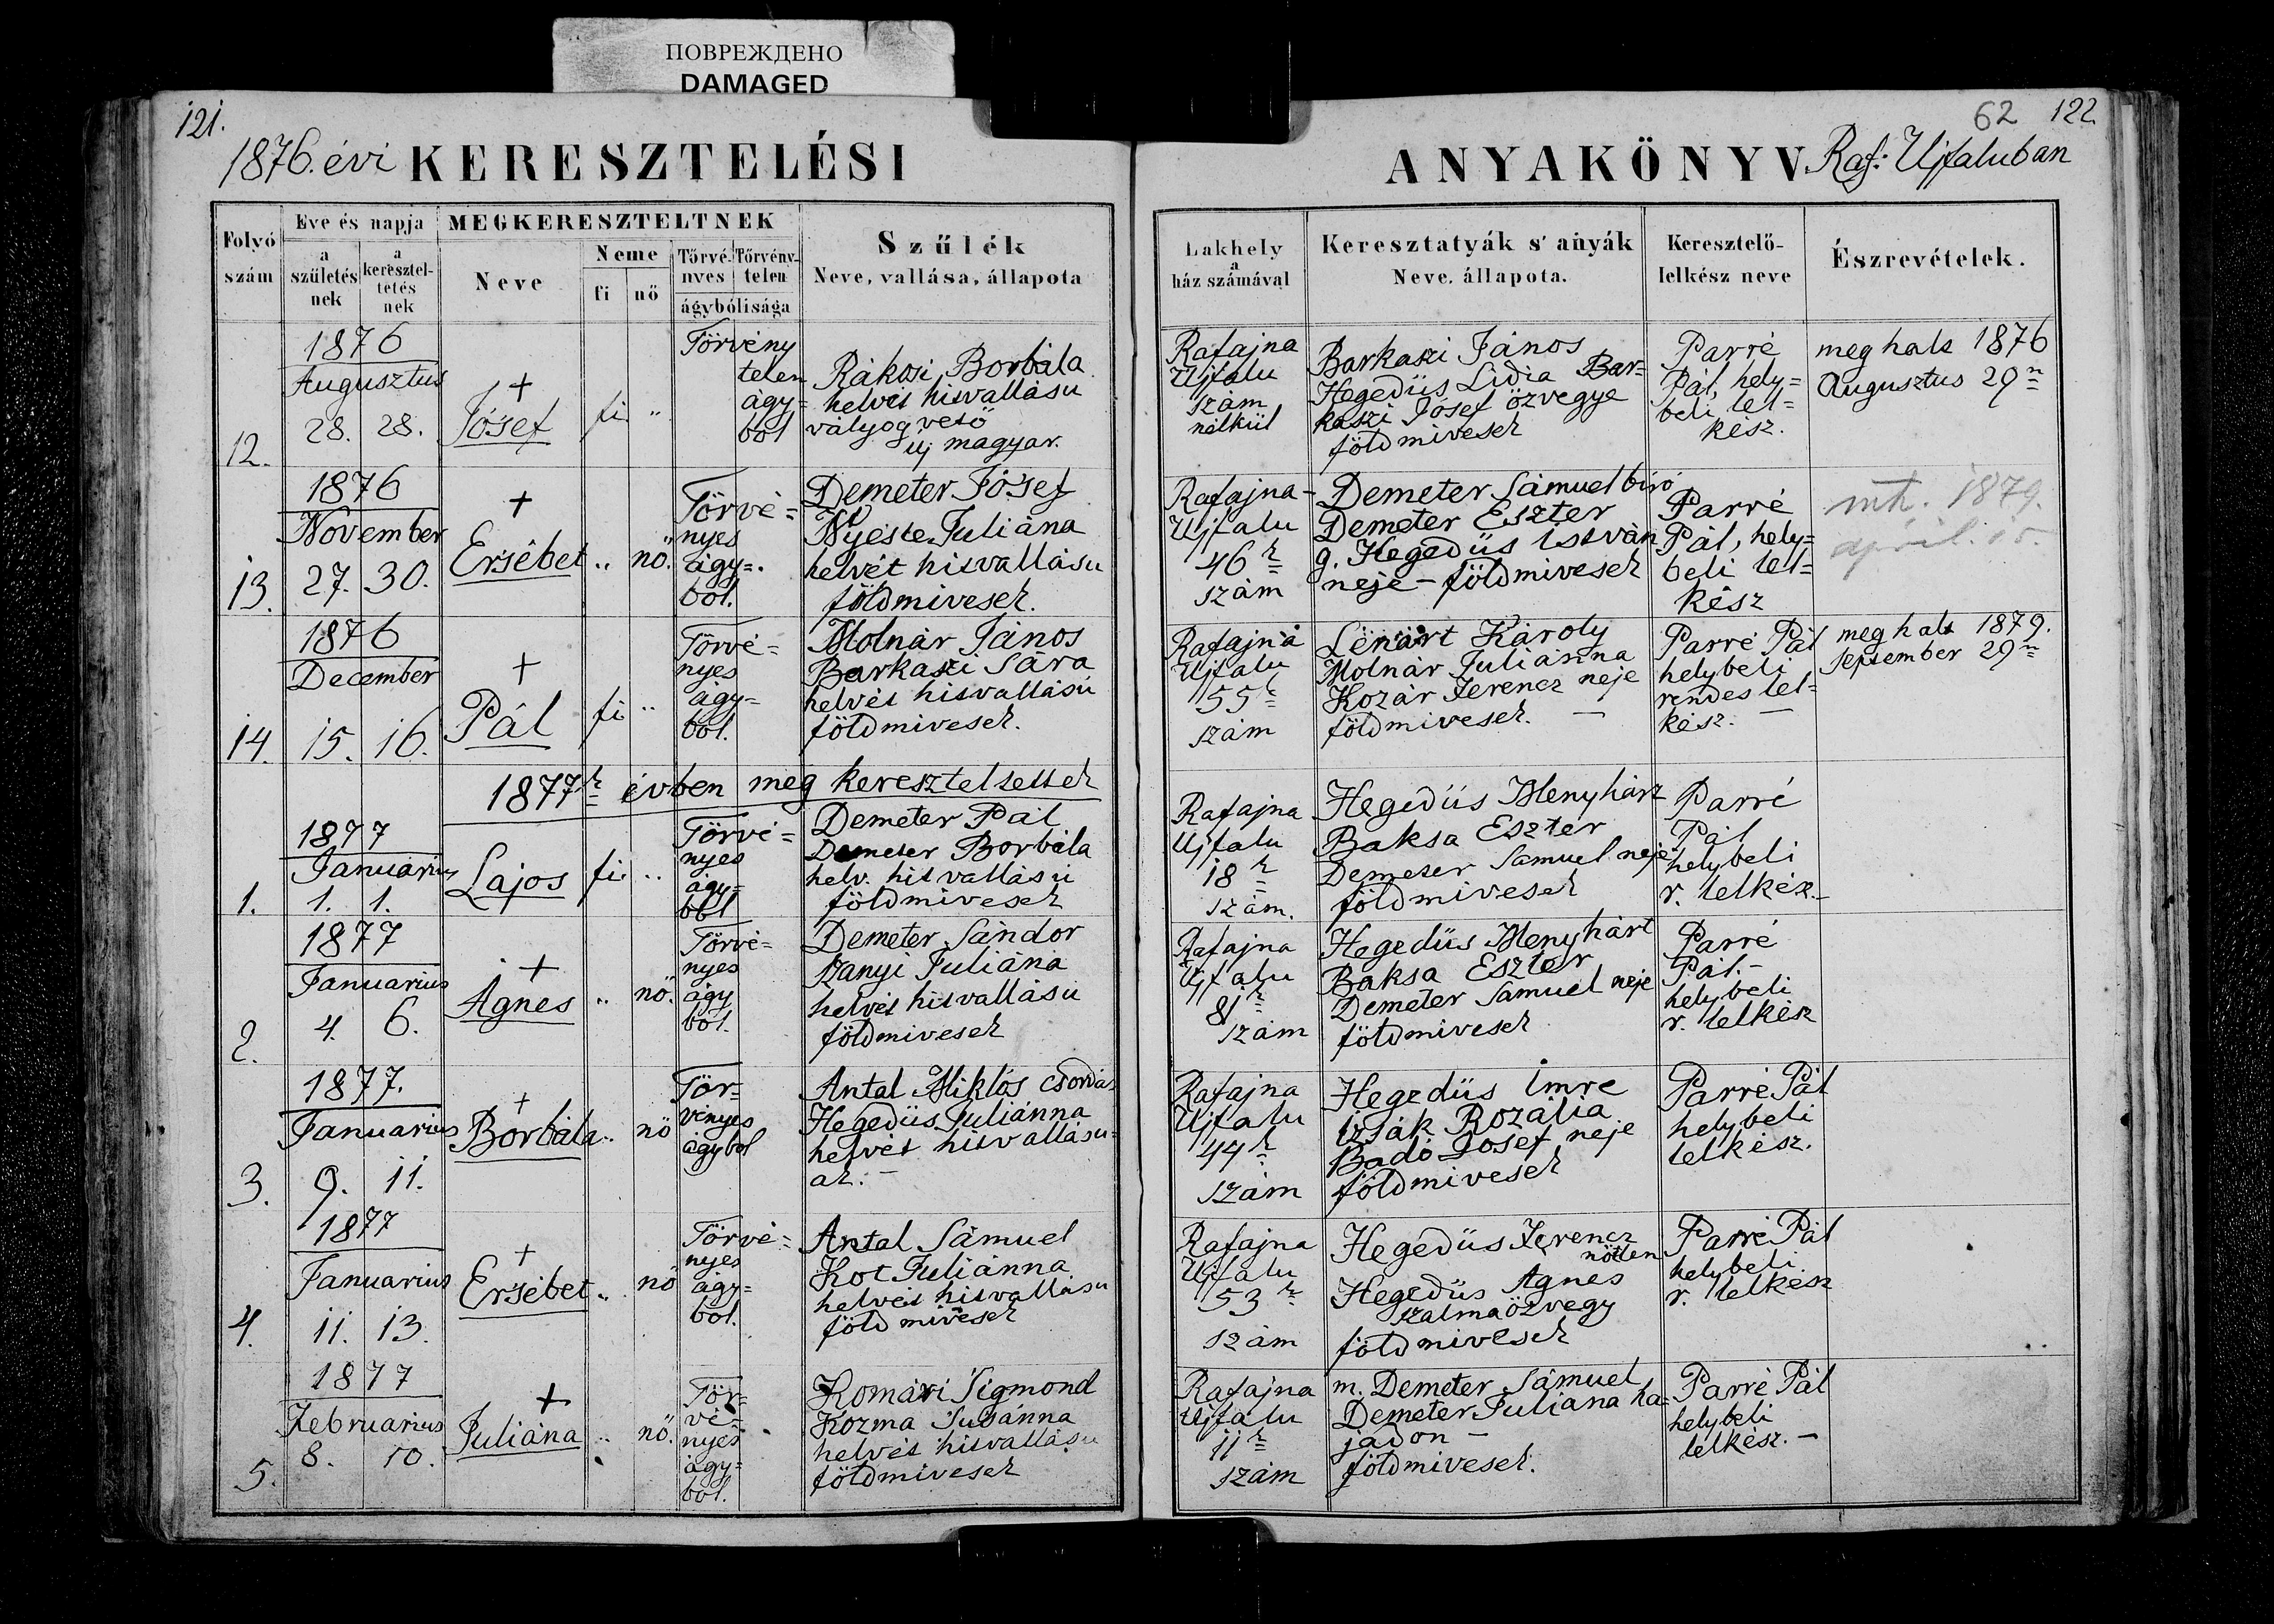 ПОВРЕЖДЕНО
DAMAGED
121.
1876. évi KERESZTELÉSI
Folyó szám
Eve és napja
a születés nek
a keresztel- tetés nek
MEGKERESZTELTNEK
Neve
Neme
fi
nő
Törvé- nyes
Törvény- telen
ágybólisága
Szűlék
Neve, vallása, állapota
62 122
ANYAKÖNYV Raf: Ujfaluban
Lakhely
a
ház számával
Keresztatyák s' anyák
Neve, állapota.
Keresztelő-
lelkész neve
Észrevételek.
12.
1876
Augusztus
28. 28.
+
Jósef
fi "
Törvény
telen
ágy=
ból
Rákosi Borbála
helvét hitvallásu
vályog vető
új magyar.
Rafajna
Ujfalu
szám
nélkül
Barkaszi János
Hegedüs Lidia Bar=
kaszi Jósef özvegye
földmivesek
Parré
Pál, hely=
beli lel=
kész.
meg halt 1876
Augusztus 29n
13.
1876
November
27. 30.
+
Ersébet
" nö.
Törvé=
nyes
ágy=
ból.
Demeter Jósef
Nyeste Juliána
helvét hitvallásu
földmivesek.
Rafajna-
Ujfalu
46k
szám
Demeter Sámuel biró
Demeter Eszter
g. Hegedüs István
neje – földmivesek
Parré
Pál, hely=
beli lel=
kész
mh. 1879.
april. 15.
14.
1876
December
15. 16.
+
Pál
fi "
Törvé=
nyes
ágy=
ból.
Molnár János
Barkaszi Sára
helvét hitvallású
földmivesek.
Rafajna
Ujfalu
55k
szám
Lénárt Károly
Molnár Juliánna
Kozár Ferencz neje
földmivesek. –
Parré Pál
helybeli
rendes lel=
kész. –
meg halt 1879.
September 29n
1877k évben meg kereszteltettek
1.
1877
Januárius
1. 1.
Lajos
fi "
Törvé=
nyes
ágy=
ból
Demeter Pál
Demeter Borbála
helv. hitvallásu
földmivesek
Rafajna
Ujfalu
18k
szám.
Hegedüs Menyhárt
Baksa Eszter
Demeter Samuel neje
földmivesek
Parré
Pál
helybeli
r. lelkész.–
2.
1877
Januarius
4. 6.
+
Ágnes
" nö.
Törvé=
nyes
ágy
ból.
Demeter Sándor
Szanyi Juliána
helvét hitvallásu
földmivesek
Rafajna
Ujfalu
81k
szám
Hegedüs Menyhárt
Baksa Eszter
Demeter Samuel neje
földmivesek
Parré
Pál.–
helybeli
r. lelkész
3.
1877.
Januarius
9. 11.
+
Borbála
" nö
Tör=
vényes
ágyból
Antal Miklós csordás
Hegedüs Juliánna
helvét hitvallásu=
ak. –
Rafajna
Ujfalu
44k
szám
Hegedüs Imre
Izsák Rozália
Badó Josef neje
földmivesek
Parré Pál
helybeli
lelkész.
4.
1877
Januarius
11. 13.
+
Ersébet
" nö
Törvé=
nyes
ágy=
ból.
Antal Sámuel
Kot Juliánna
helvét hitvallásu
földmivesek
Rafajna
Ujfalu
53k
szám
Hegedüs Ferencz
nötlen
Hegedüs Ágnes
szalmaözvegy
földmivesek
Parré Pál
helybeli
r. lelkész
5.
1877
Februarius
8. 10.
+
Juliána
" nö.
Tör=
vé=
nyes
ágy=
ból.
Komári Sigmond
Kozma Susánna
helvét hitvallásu
földmivesek
Rafajna
Ujfalu
11k
szám
m. Demeter Sámuel
Demeter Juliana ha=
jadon –
földmivesek.
Parré Pál
helybeli
lelkész. –